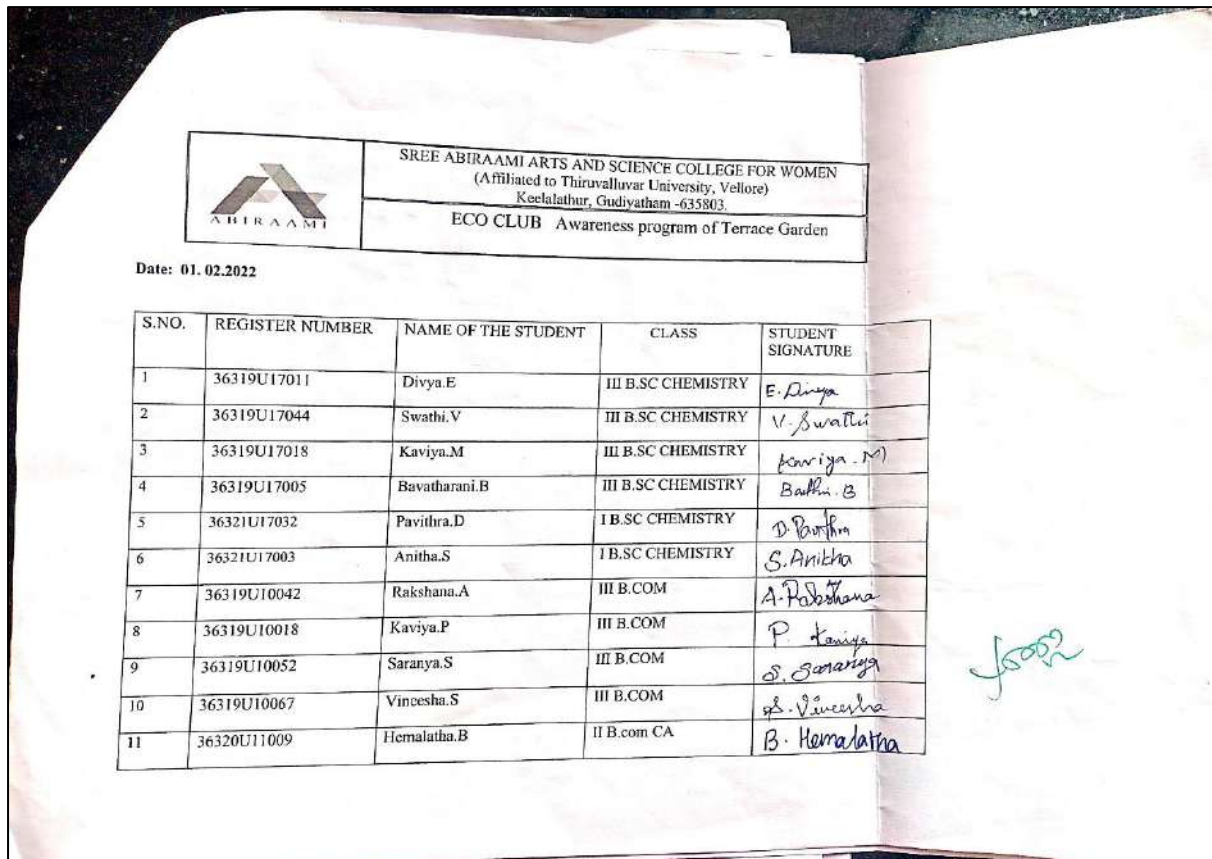 SREE ABIRAAMI ARTS AND SCIENCE COLLEGE FOR WOMEN
(Affiliated to Thiruvalluvar University, Vellore)
Keelalathur, Gudiyatham -635803.
ABIRAAMI
ECO CLUB Awareness program of Terrace Garden
Date: 01. 02.2022
S.NO. REGISTER NUMBER NAME OF THE STUDENT CLASS STUDENT SIGNATURE
1 36319U17011 Divya.E III B.SC CHEMISTRY E. Divya
2 36319U17044 Swathi.V III B.SC CHEMISTRY V. Swathi
3 36319U17018 Kaviya.M III B.SC CHEMISTRY Kaviya.M
4 36319U17005 Bavatharani.B III B.SC CHEMISTRY
5 36321U17032 Pavithra.D I B.SC CHEMISTRY D. Pavithra
6 36321U17003 Anitha.S I B.SC CHEMISTRY S. Anitha
7 36319U10042 Rakshana.A III B.COM A. Rakshana
8 36319U10018 Kaviya.P III B.COM P. Kaviya
9 36319U10052 Saranya.S III B.COM S. Saranya
10 36319U10067 Vineesha.S III B.COM S. Vineesha
11 36320U11009 Hemalatha.B II B.com CA B. Hemalatha